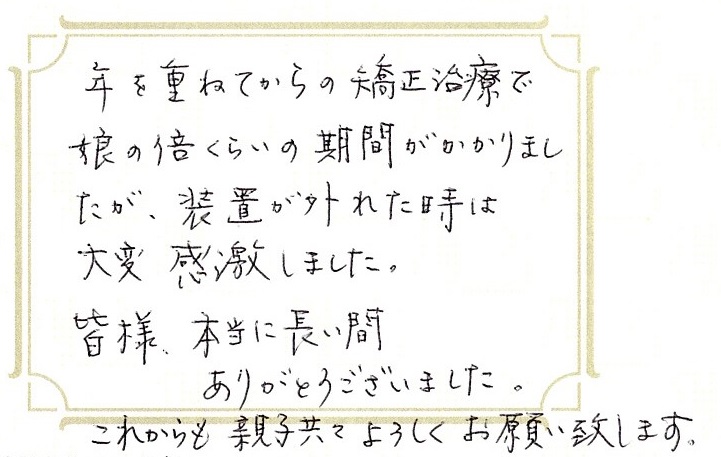 年を重ねてからの矯正治療で
娘の倍くらいの期間がかかりまし
たが、装置が外れた時は
大変感激しました。
皆様、本当に長い間
ありがとうございました。
これからも親子共々よろしくお願い致します。